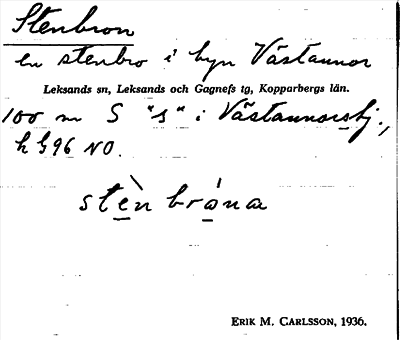 Stenbron
en stenbro i byn Västannor
Leksands sn, Leksands och Gagnefs tg, Kopparbergs län.
100 m S "s" i Västannorsbj.,
h 596 NO.
stèn bróna
ERIK M. CARLSSON, 1936.